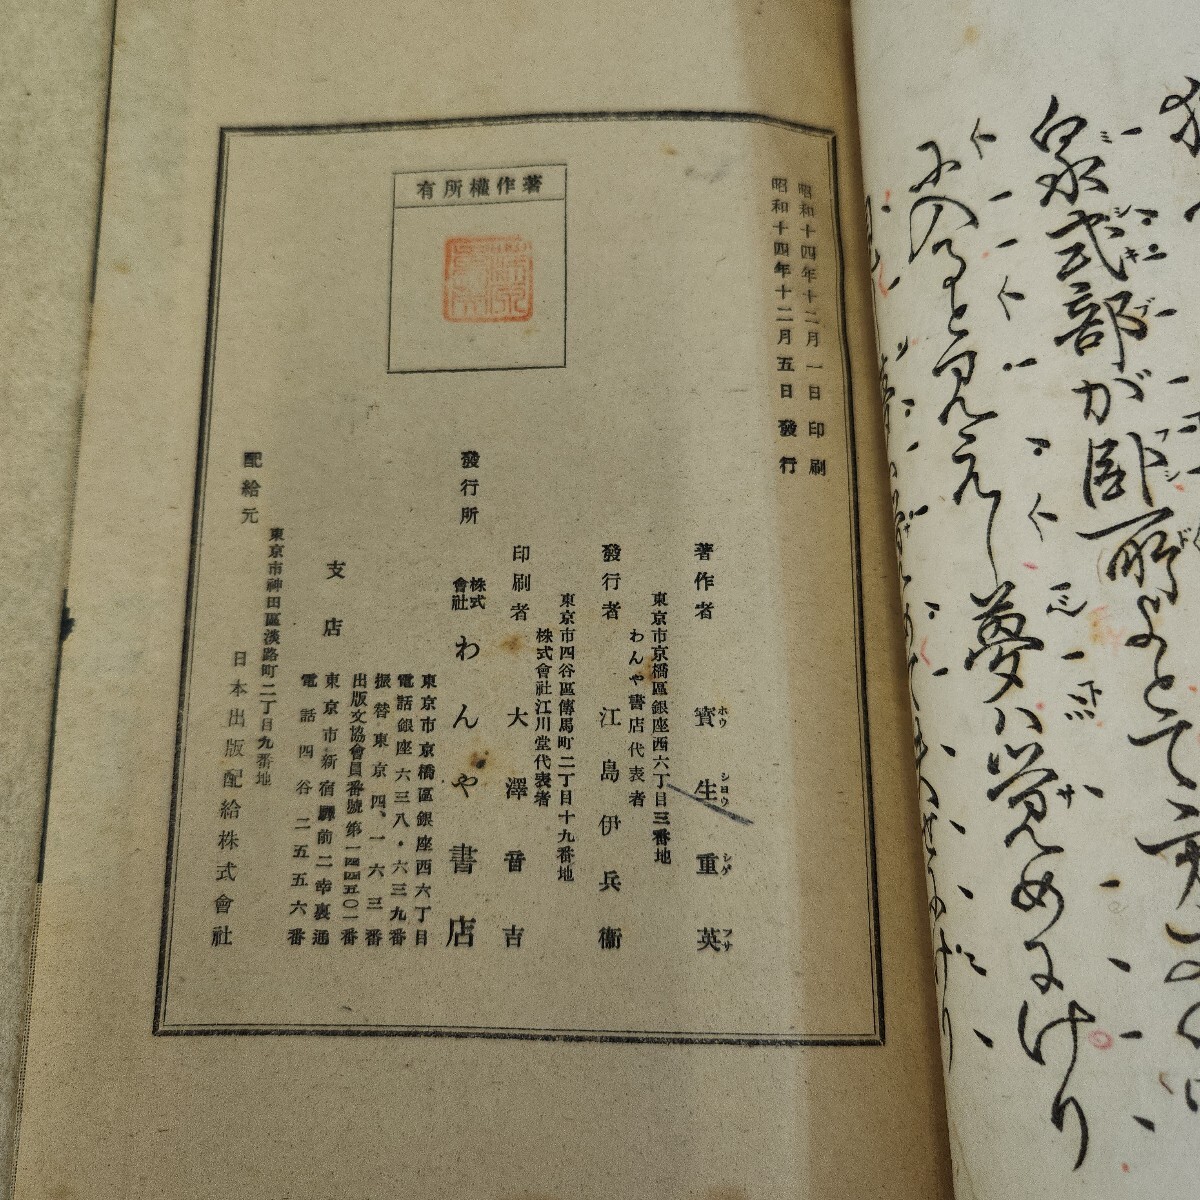 泉式部が臥所よとて
に入ると見えし夢は覚めにけり
昭和十四年十二月一日印刷
昭和十四年十二月五日發行
著作權所有
著作者 寳生重英
ホウ シヨウ シゲ フサ
東京市京橋區銀座西六丁目三番地
わんや書店代表者
發行者 江島伊兵衞
東京市四谷區傳馬町二丁目十九番地
株式會社江川堂代表者
印刷者 大澤音吉
發行所 株式會社 わんや書店
東京市京橋區銀座西六丁目
電話銀座六三八・六三九番
振替東京四、一六三番
出版文協會員番號第一四四五〇一番
支店 東京市新宿驛前二幸裏通
電話四谷二五五六番
東京市神田區淡路町二丁目九番地
配給元 日本出版配給株式會社